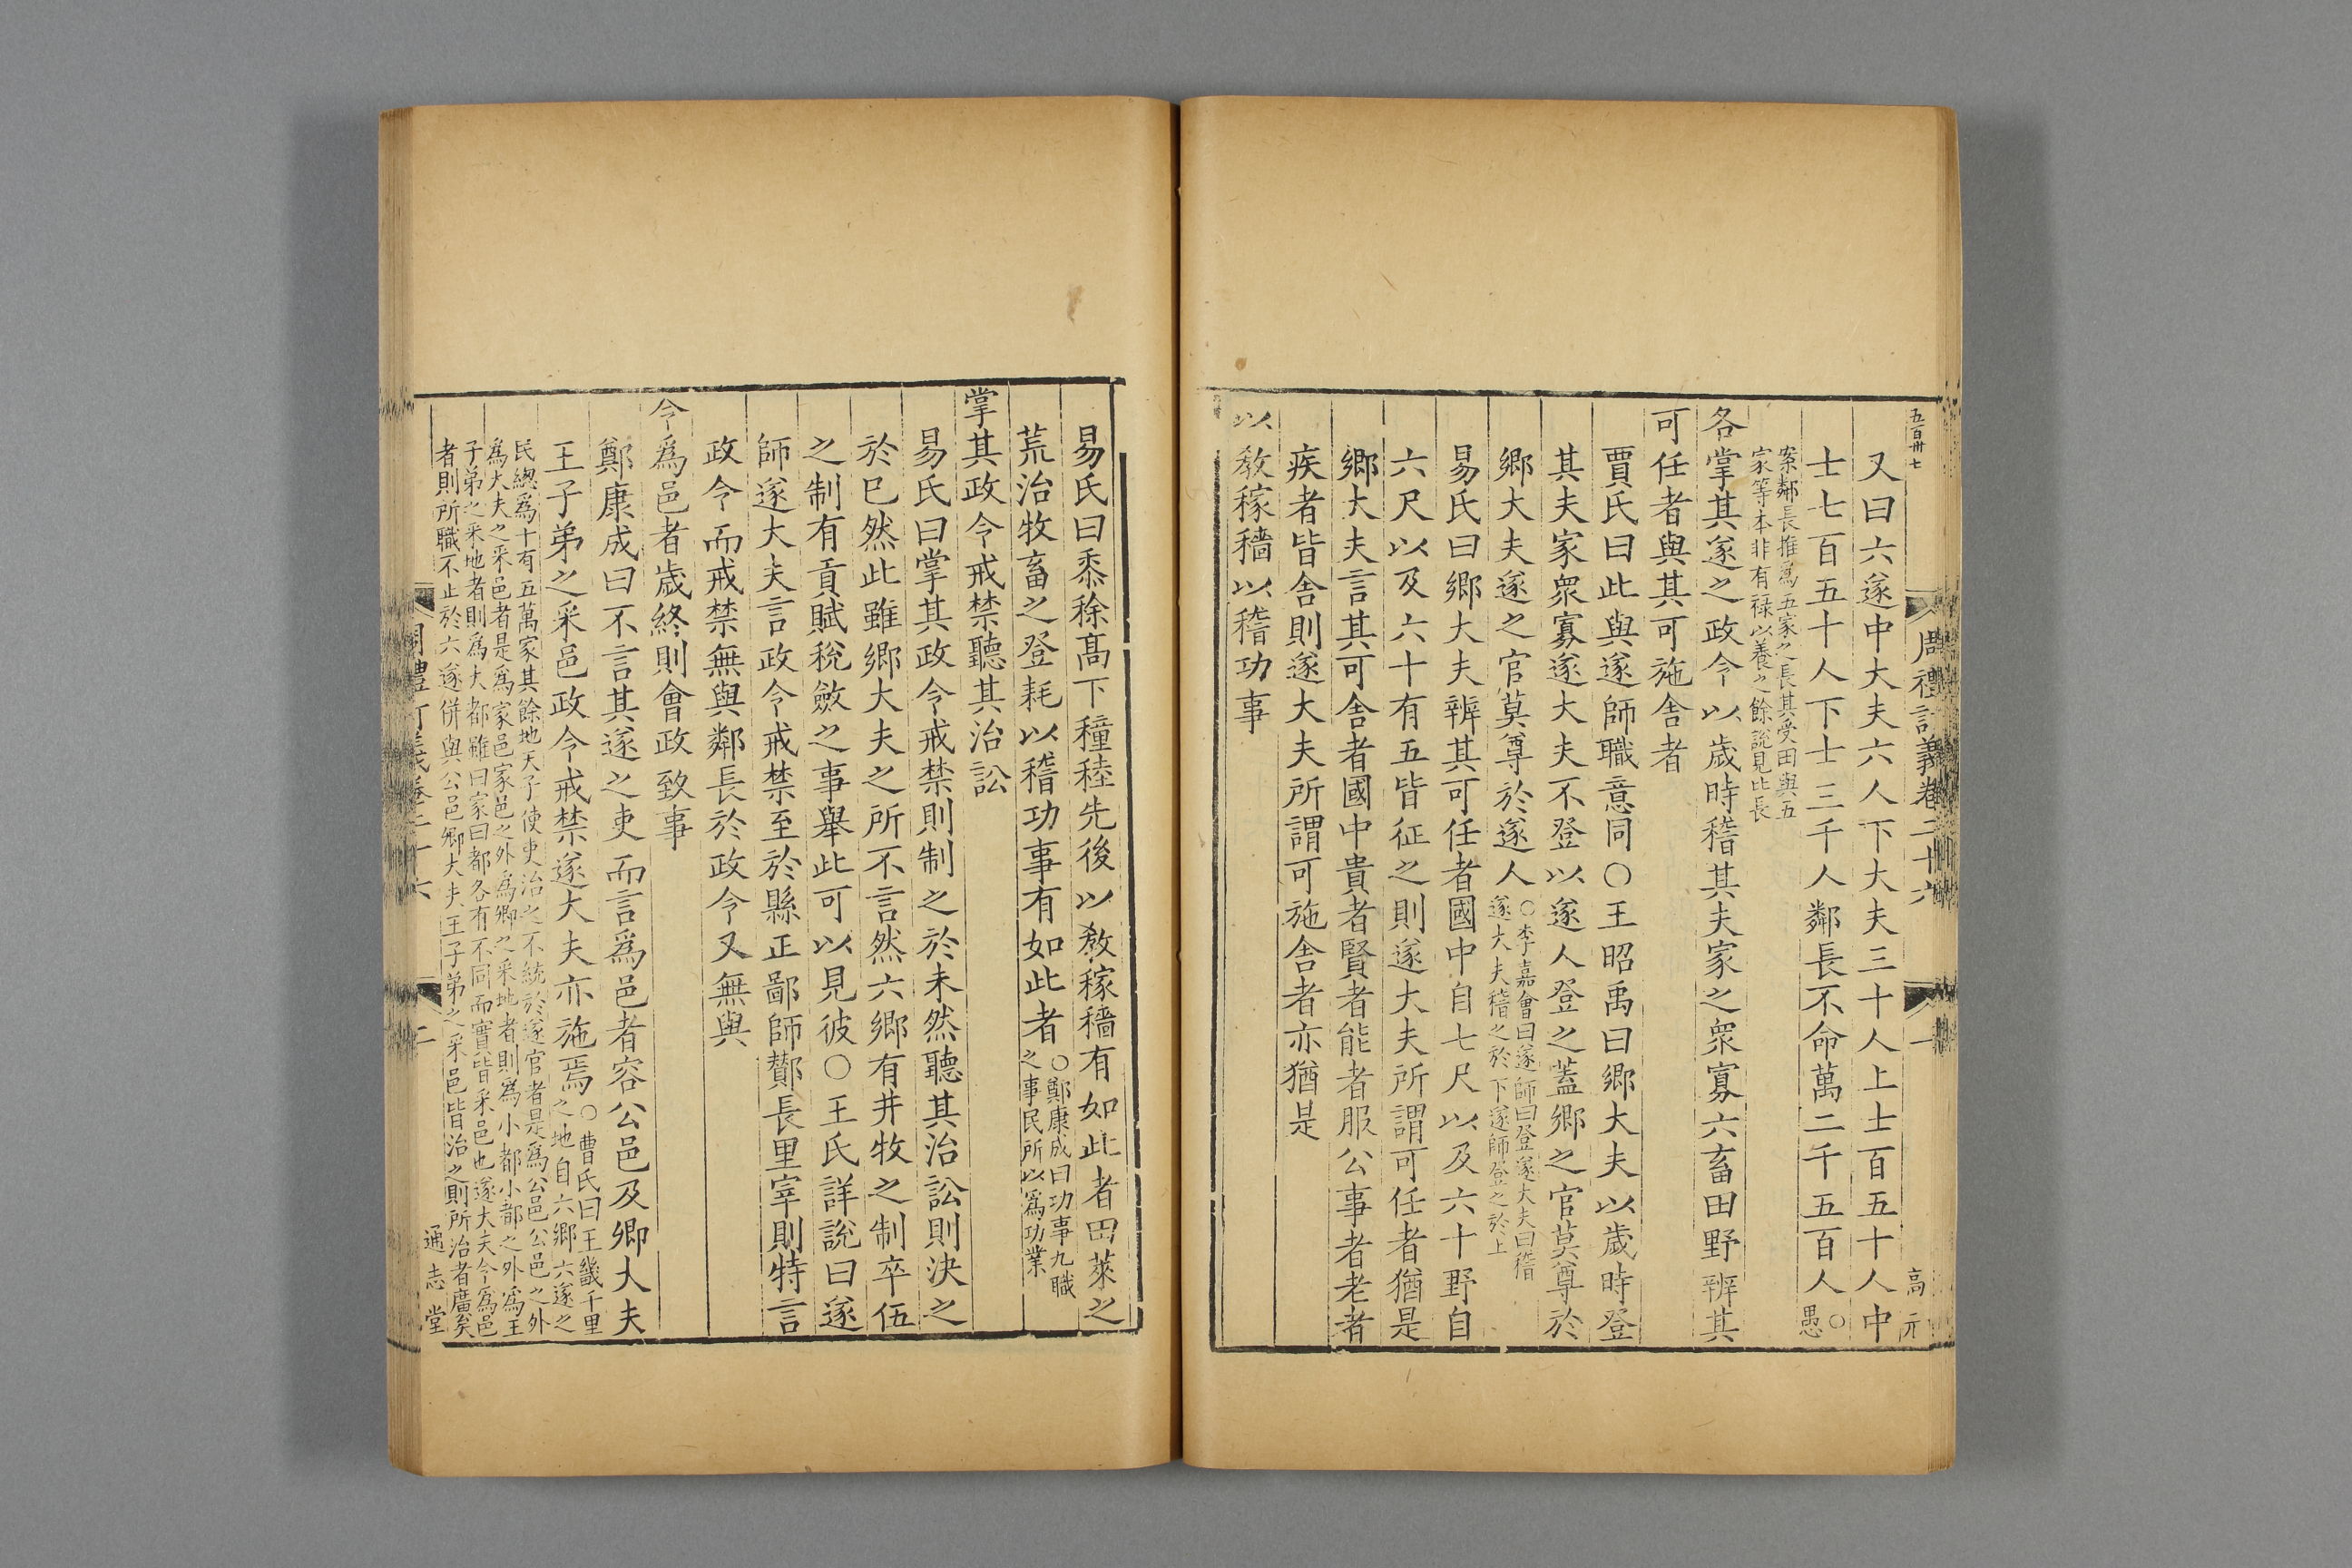 五百卅七
周禮訂義卷二十六
一
高元
又曰六遂中大夫六人下大夫三十人上士百五十人中
士七百五十人下士三千人鄰長不命萬二千五百人○愚
案鄰長推爲五家之長其受田與五
家等本非有祿以養之餘說見比長
各掌其遂之政令以歲時稽其夫家之衆寡六畜田野辨其
可任者與其可施舍者
賈氏曰此與遂師職意同○王昭禹曰鄉大夫以歲時登
其夫家衆寡遂大夫不登以遂人登之蓋鄉之官莫尊於
鄉大夫遂之官莫尊於遂人○李嘉會曰遂師曰登遂大夫曰稽
遂大夫稽之於下遂師登之於上
易氏曰鄉大夫辨其可任者國中自七尺以及六十野自
六尺以及六十有五皆征之則遂大夫所謂可任者猶是
鄉大夫言其可舍者國中貴者賢者能者服公事者老者
疾者皆舍則遂大夫所謂可施舍者亦猶是
以敎稼穡以稽功事
易氏曰黍稌高下穜稑先後以敎稼穡有如此者田萊之
荒治牧畜之登耗以稽功事有如此者○鄭康成曰功事九職
之事民所以爲功業
掌其政令戒禁聽其治訟
易氏曰掌其政令戒禁則制之於未然聽其治訟則決之
於已然此雖鄉大夫之所不言然六鄉有井牧之制卒伍
之制有貢賦稅斂之事舉此可以見彼○王氏詳說曰遂
師遂大夫言政令戒禁至於縣正鄙師酇長里宰則特言
政令而戒禁無與鄰長於政令又無與
令爲邑者歲終則會政致事
鄭康成曰不言其遂之吏而言爲邑者容公邑及卿大夫
王子弟之采邑政令戒禁遂大夫亦施焉○曹氏曰王畿千里
之地自六鄉六遂之
民總爲十有五萬家其餘地天子使吏治之不統於遂官者是爲公邑公邑之外
爲大夫之采邑者是爲家邑家邑之外爲卿之采地者則爲小都小都之外爲王
子弟之采地者則爲大都雖曰家曰都各有不同而實皆采邑也遂大夫令爲邑
者則所職不止於六遂併與公邑卿大夫王子弟之采邑皆治之則所治者廣矣
周禮訂義卷二十六
二
通志堂